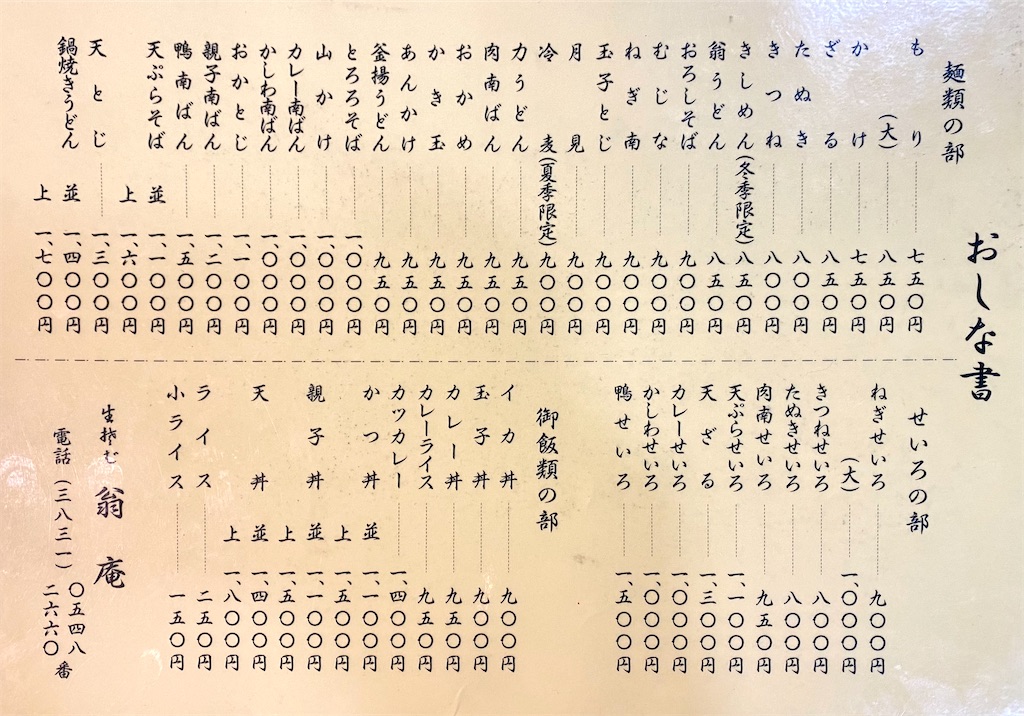 おしな書
麺類の部
もり 七五〇円
(大) 八五〇円
かけ 七五〇円
ざる 八五〇円
たぬき 八〇〇円
きつね 八〇〇円
きしめん(冬季限定) 八五〇円
翁うどん 八五〇円
おろしそば 九〇〇円
むじな 九〇〇円
ねぎ南 九〇〇円
玉子とじ 九〇〇円
月見 九〇〇円
冷麦(夏季限定) 九〇〇円
力うどん 九五〇円
肉南ばん 九五〇円
おかめ 九五〇円
かき玉 九五〇円
あんかけ 九五〇円
釜揚うどん 九五〇円
とろろそば 一、〇〇〇円
山かけ 一、〇〇〇円
カレー南ばん 一、〇〇〇円
かしわ南ばん 一、〇〇〇円
おかとじ 一、一〇〇円
親子南ばん 一、二〇〇円
鴨南ばん 一、五〇〇円
天ぷらそば 並 一、一〇〇円
上 一、六〇〇円
天とじ 一、三〇〇円
鍋焼きうどん 並 一、四〇〇円
上 一、七〇〇円
せいろの部
ねぎせいろ 九〇〇円
(大) 一、〇〇〇円
きつねせいろ 八〇〇円
たぬきせいろ 八〇〇円
肉南せいろ 九五〇円
天ぷらせいろ 一、一〇〇円
天ざる 一、三〇〇円
カレーせいろ 一、〇〇〇円
かしわせいろ 一、〇〇〇円
鴨せいろ 一、五〇〇円
御飯類の部
イカ丼 九〇〇円
玉子丼 九〇〇円
カレー丼 九五〇円
カレーライス 九五〇円
カツカレー 一、四〇〇円
かつ丼 並 一、一〇〇円
上 一、五〇〇円
親子丼 並 一、一〇〇円
上 一、五〇〇円
天丼 並 一、四〇〇円
上 一、八〇〇円
ライス 二五〇円
小ライス 一五〇円
生そば 翁庵
電話(三八三一)〇五四八
二六六〇番